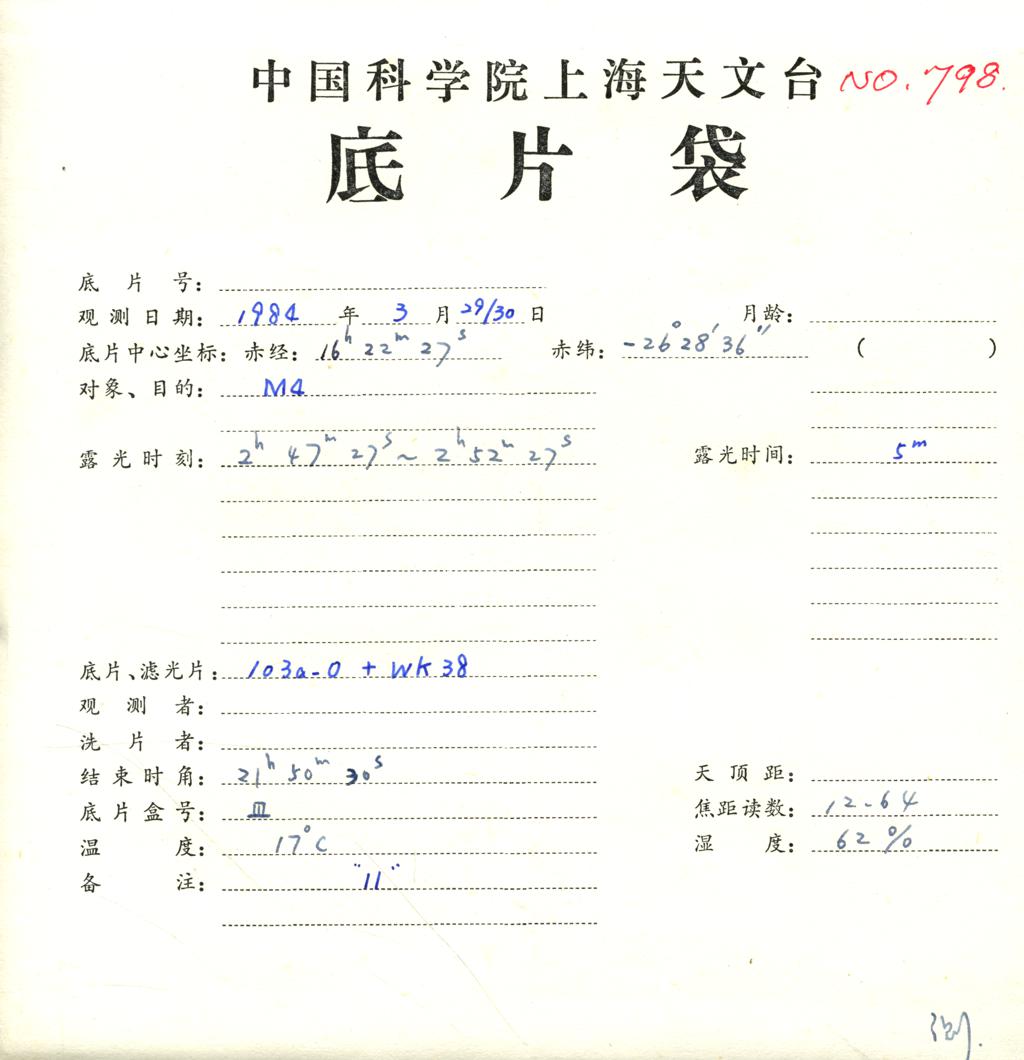 中国科学院上海天文台 NO. 798.
底片袋
底片号：
观测日期： 1984 年 3 月 29/30 日 月龄：
底片中心坐标：赤经： 16h 22m 27s 赤纬： -26°28′36″ ( )
对象、目的： M4
露光时刻： 2h 47m 27s ~ 2h 52m 27s 露光时间： 5m
底片、滤光片： 103a-O + WK38
观测者：
洗片者：
结束时角： 21h 50m 30s 天顶距：
底片盒号： III 焦距读数： 12-64
温度： 17°C 湿度： 62%
备注： "11"